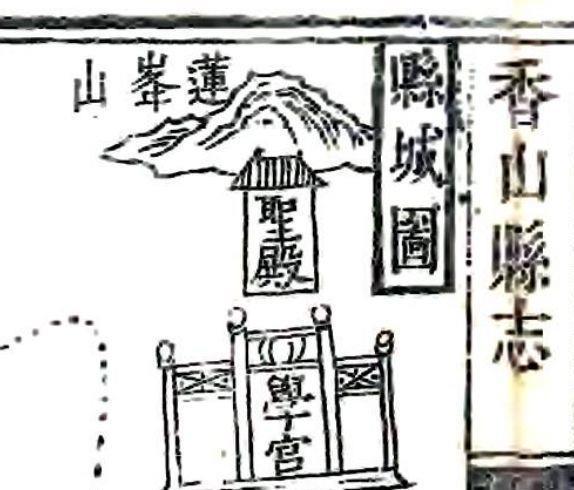 香山縣志
縣城圖
蓮峯山
聖殿
學宮